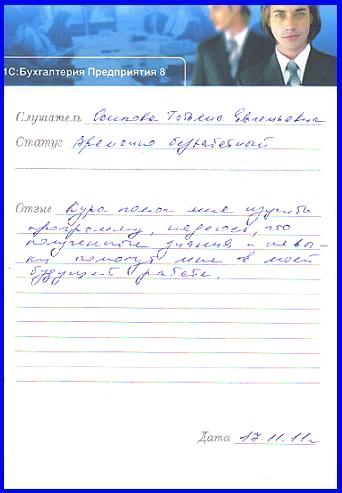 1С:Бухгалтерия Предприятия 8
Слушатель Осипова Татьяна Евгеньевна
Статус Временно безработный
Отзыв Курс помог мне изучить
программу, надеюсь, что
полученные знания и навы-
ки помогут мне в моей
будущей работе.
Дата 17.11.11г